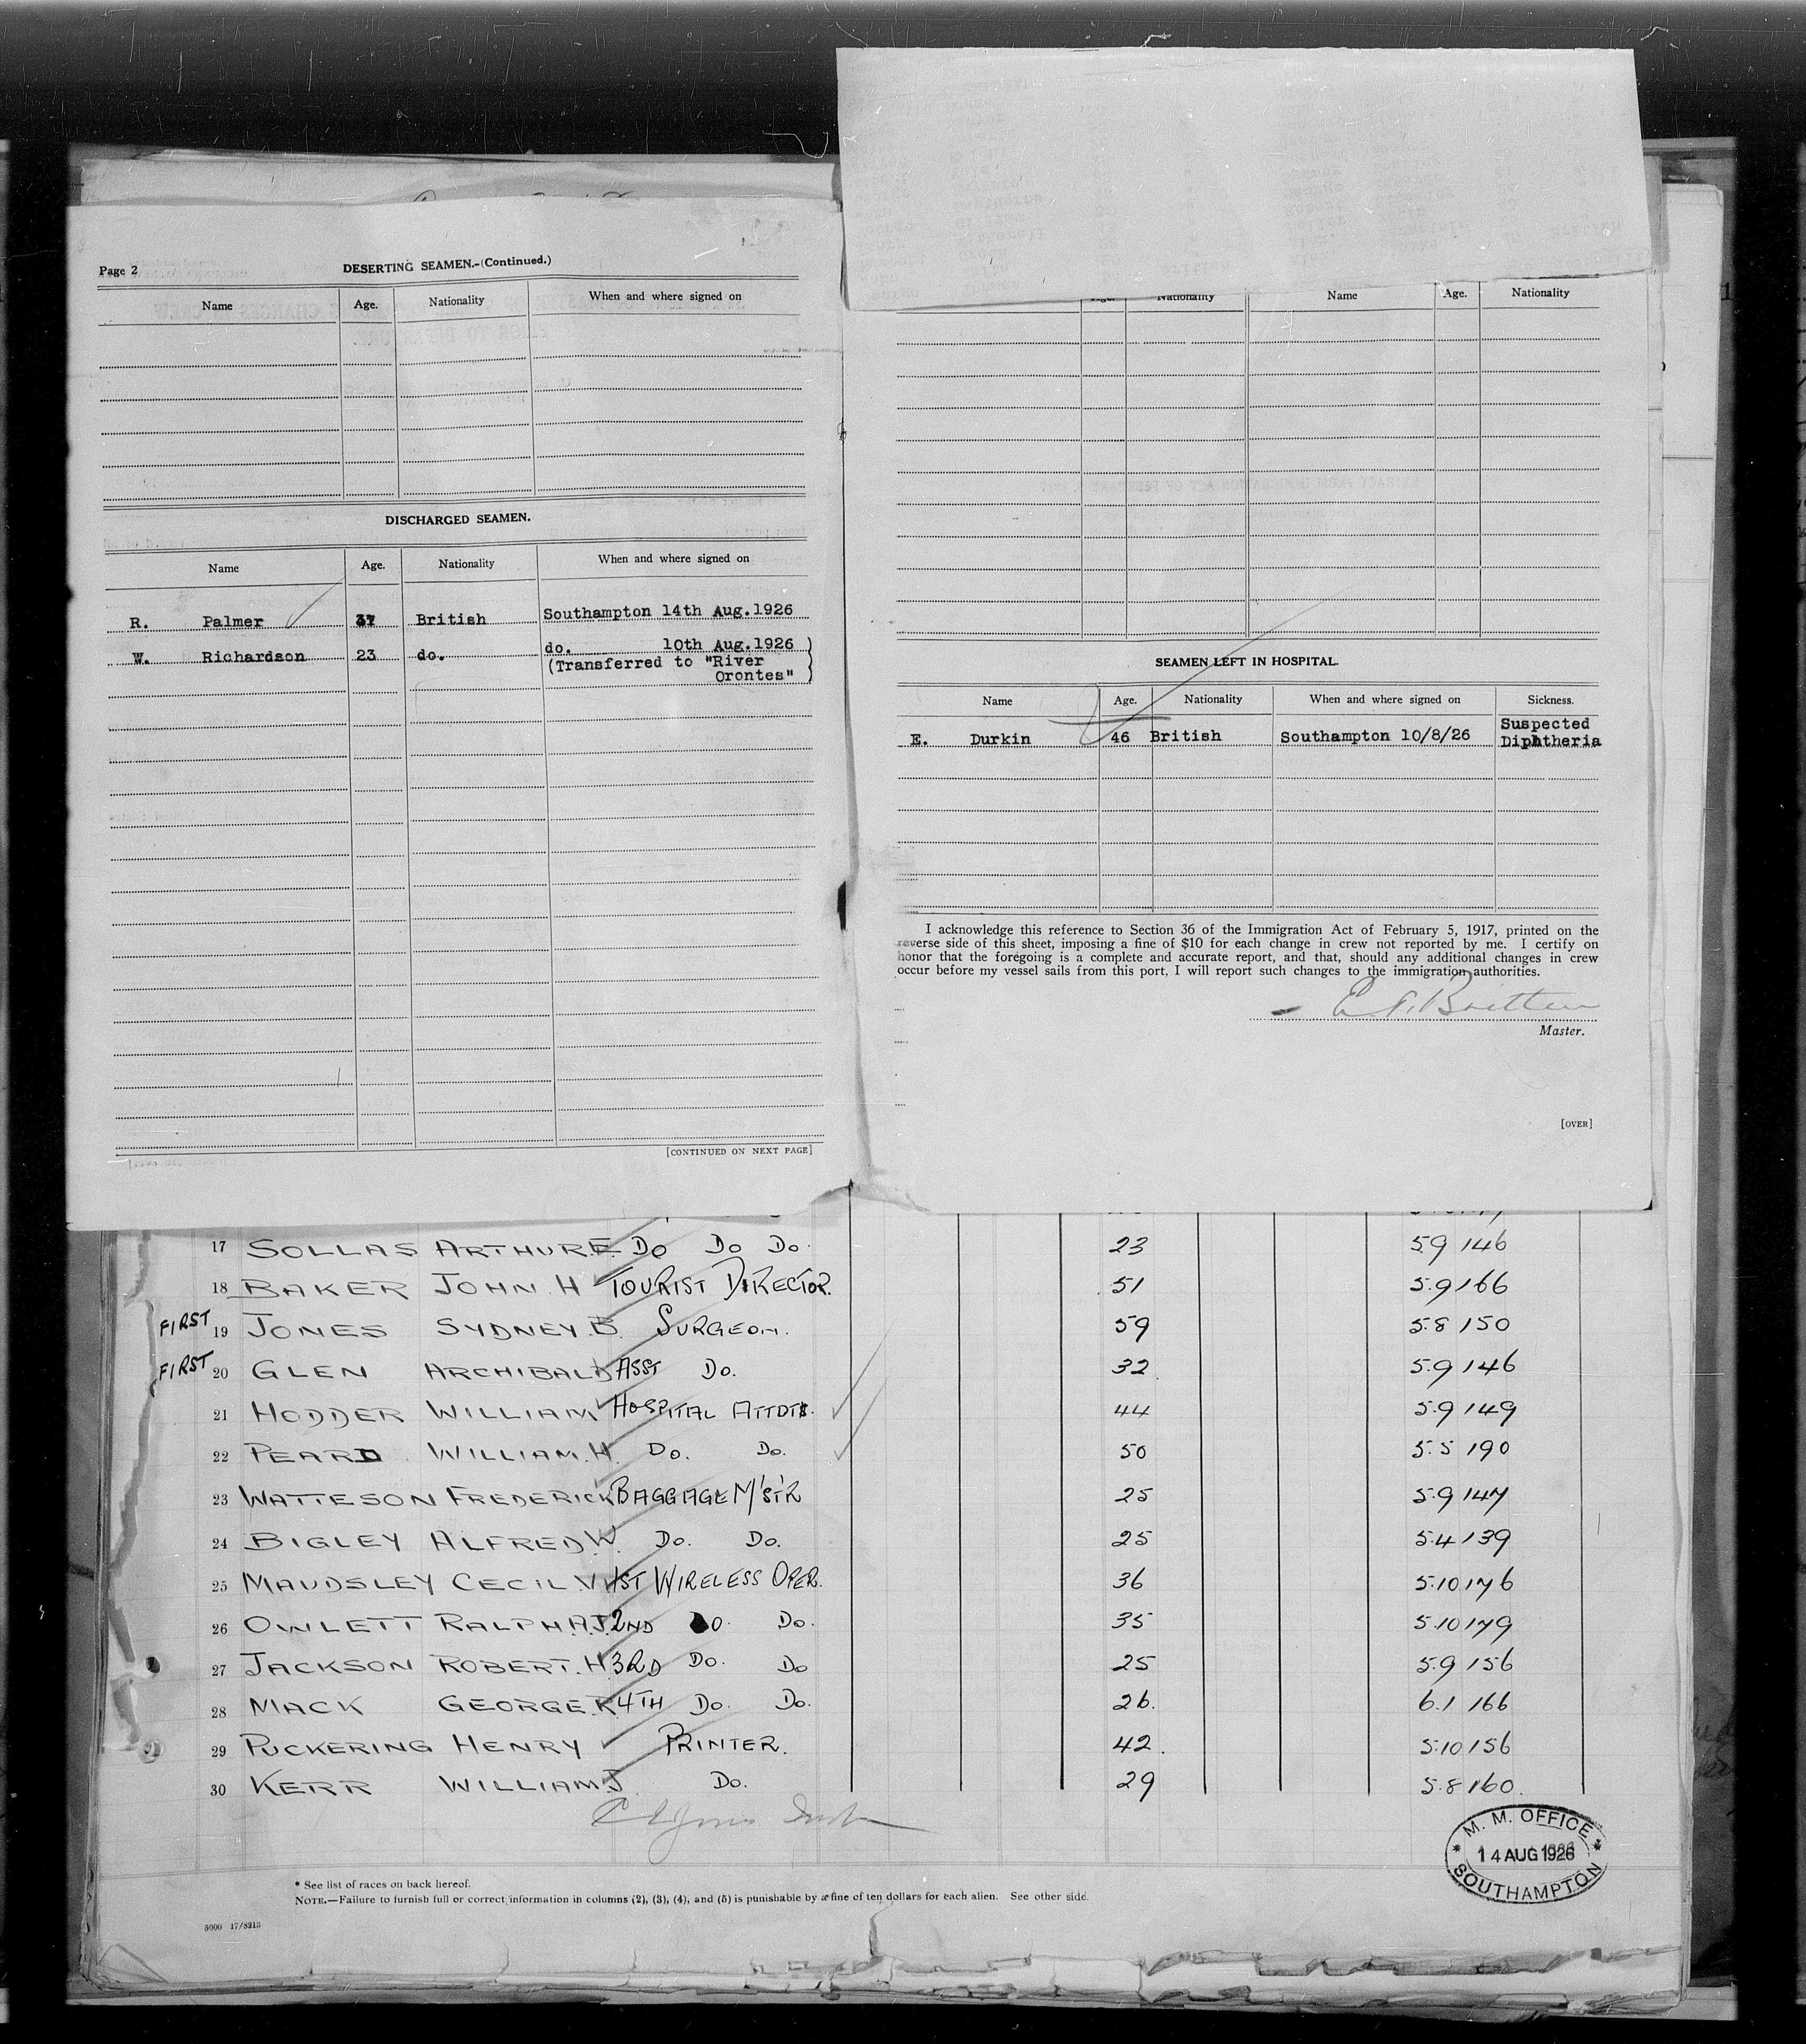 Page 2
DESERTING SEAMEN.-(Continued.)
Name Age. Nationality When and where signed on
DISCHARGED SEAMEN.
Name Age. Nationality When and where signed on
R. Palmer British Southampton 14th Aug.1926
W. Richardson 23 do. do. 10th Aug.1926
(Transferred to "River
Orontes"
[CONTINUED ON NEXT PAGE]
Nationality Name Age. Nationality
SEAMEN LEFT IN HOSPITAL.
Name Age. Nationality When and where signed on Sickness.
E. Durkin 46 British Southampton 10/8/26 Suspected
Diphtheria
I acknowledge this reference to Section 36 of the Immigration Act of February 5, 1917, printed on the
reverse side of this sheet, imposing a fine of $10 for each change in crew not reported by me. I certify on
honor that the foregoing is a complete and accurate report, and that, should any additional changes in crew
occur before my vessel sails from this port, I will report such changes to the immigration authorities.
Britten
Master.
[OVER]
17 SOLLAS ARTHUR.E. DO DO DO. 23 5.9 146
18 BAKER JOHN H TOURIST DIRECTOR. 51 5.9 166
FIRST 19 JONES SYDNEY.B. SURGEON. 59 5.8 150
FIRST 20 GLEN ARCHIBALD ASST DO. 32 5.9 146
21 HODDER WILLIAM HOSPITAL ATTDTS. 44 5.9 149
22 PEARD WILLIAM.H. DO. DO. 50 5.5 190
23 WATTESON FREDERICK BAGGAGE M'ST'R 25 5.9 147
24 BIGLEY ALFRED.W. DO. DO. 25 5.4 139
25 MAUDSLEY CECIL V 1ST WIRELESS OPER. 36 5.10 176
26 OWLETT RALPH.A.J. 2ND DO. DO. 35 5.10 179
27 JACKSON ROBERT.H. 3RD DO. DO 25 5.9 156
28 MACK GEORGE.R. 4TH DO. DO. 26. 6.1 166
29 PUCKERING HENRY PRINTER. 42. 5.10 156
30 KERR WILLIAM.J. DO. 29 5.8 160.
M. M. OFFICE
14 AUG 1926
SOUTHAMPTON
* See list of races on back hereof.
NOTE.—Failure to furnish full or correct information in columns (2), (3), (4), and (5) is punishable by a fine of ten dollars for each alien. See other side.
5000 17/8213